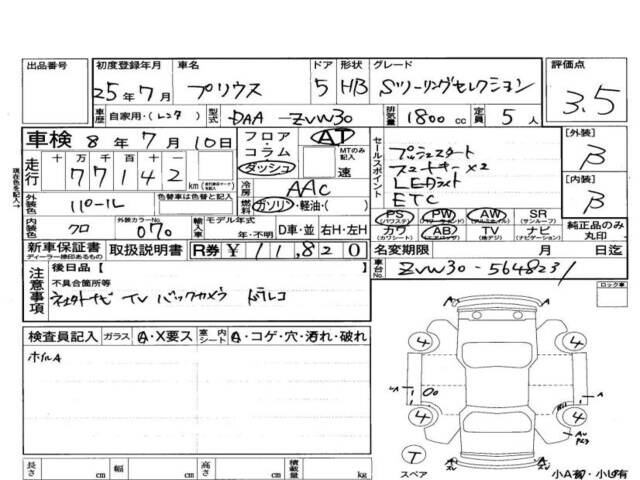 出品番号 初度登録年月 車名 ドア 形状 グレード 評価点
25年7月 プリウス 5 HB Sツーリングセレクション 3.5
車歴 自家用・(レンタ ) 型式 DAA-ZVW30 排気量 1800cc 定員 5人
車検 8年7月10日 フロア・コラム・ダッシュ AT MTのみ記入 速
走行 十万千百十 77142km
セールスポイント
プッシュスタート
スマートキー×2
LEDライト
ETC
[外装] B
[内装] B
冷房 AAC
燃料 ガソリン・軽油・( )
外装色 パール 色替車は色替と記入
内装色 クロ 外装カラーNo. 070 輸入車 モデル年式 年・不明 D車・並 右H・左H
PS PW AW SR(サンルーフ)
カワ(カワシート) AB(エアバッグ) TV(地デジ) ナビ(ナビゲーション)
純正品のみ丸印
新車保証書 ディーラー捺印あるもの 取扱説明書 R券 ¥11,820 名変期限 月 日迄
注意事項 後日品[
不具合箇所等
車台No. ZVW30-5648231
ロック車
検査員記入 ガラス A・X要ス 室内シート A・コゲ・穴・汚れ・破れ
ホイルA
4 4
4 4
A
T
スペア
長さ cm 幅 cm 高さ cm 積載量 kg
現在色を記入